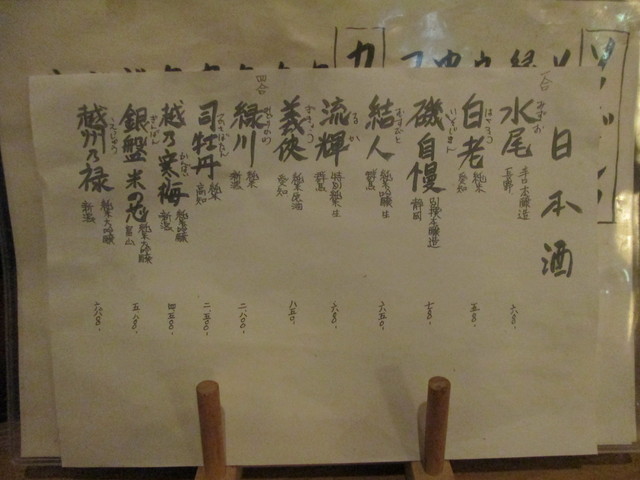 日本酒
一合
水尾 みずお 本醸造 長野 六八〇-
白老 はくろう 純米 愛知 五八〇-
磯自慢 いそじまん 別撰本醸造 静岡 七八〇-
結人 むすびと 純米吟醸 生 群馬 六五〇-
流輝 るか 特別純米 生 群馬 六八〇-
義侠 ぎきょう 純米原酒 愛知 八五〇-
四合
緑川 みどりかわ 純米 新潟 二八〇〇-
司牡丹 つかさぼたん 純米 高知 二五〇〇-
越乃寒梅 かんばい 純米吟醸 新潟 四五〇〇-
銀盤 米の芯 ぎんばん 純米大吟醸 富山 五八〇〇-
越州乃禄 純米大吟醸 新潟 六八〇〇-